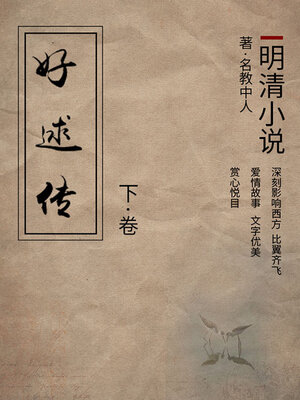 明清小说
著·名教中人
深刻影响西方 比翼齐飞
爱情故事 文字优美
赏心悦目
好逑传
下·卷